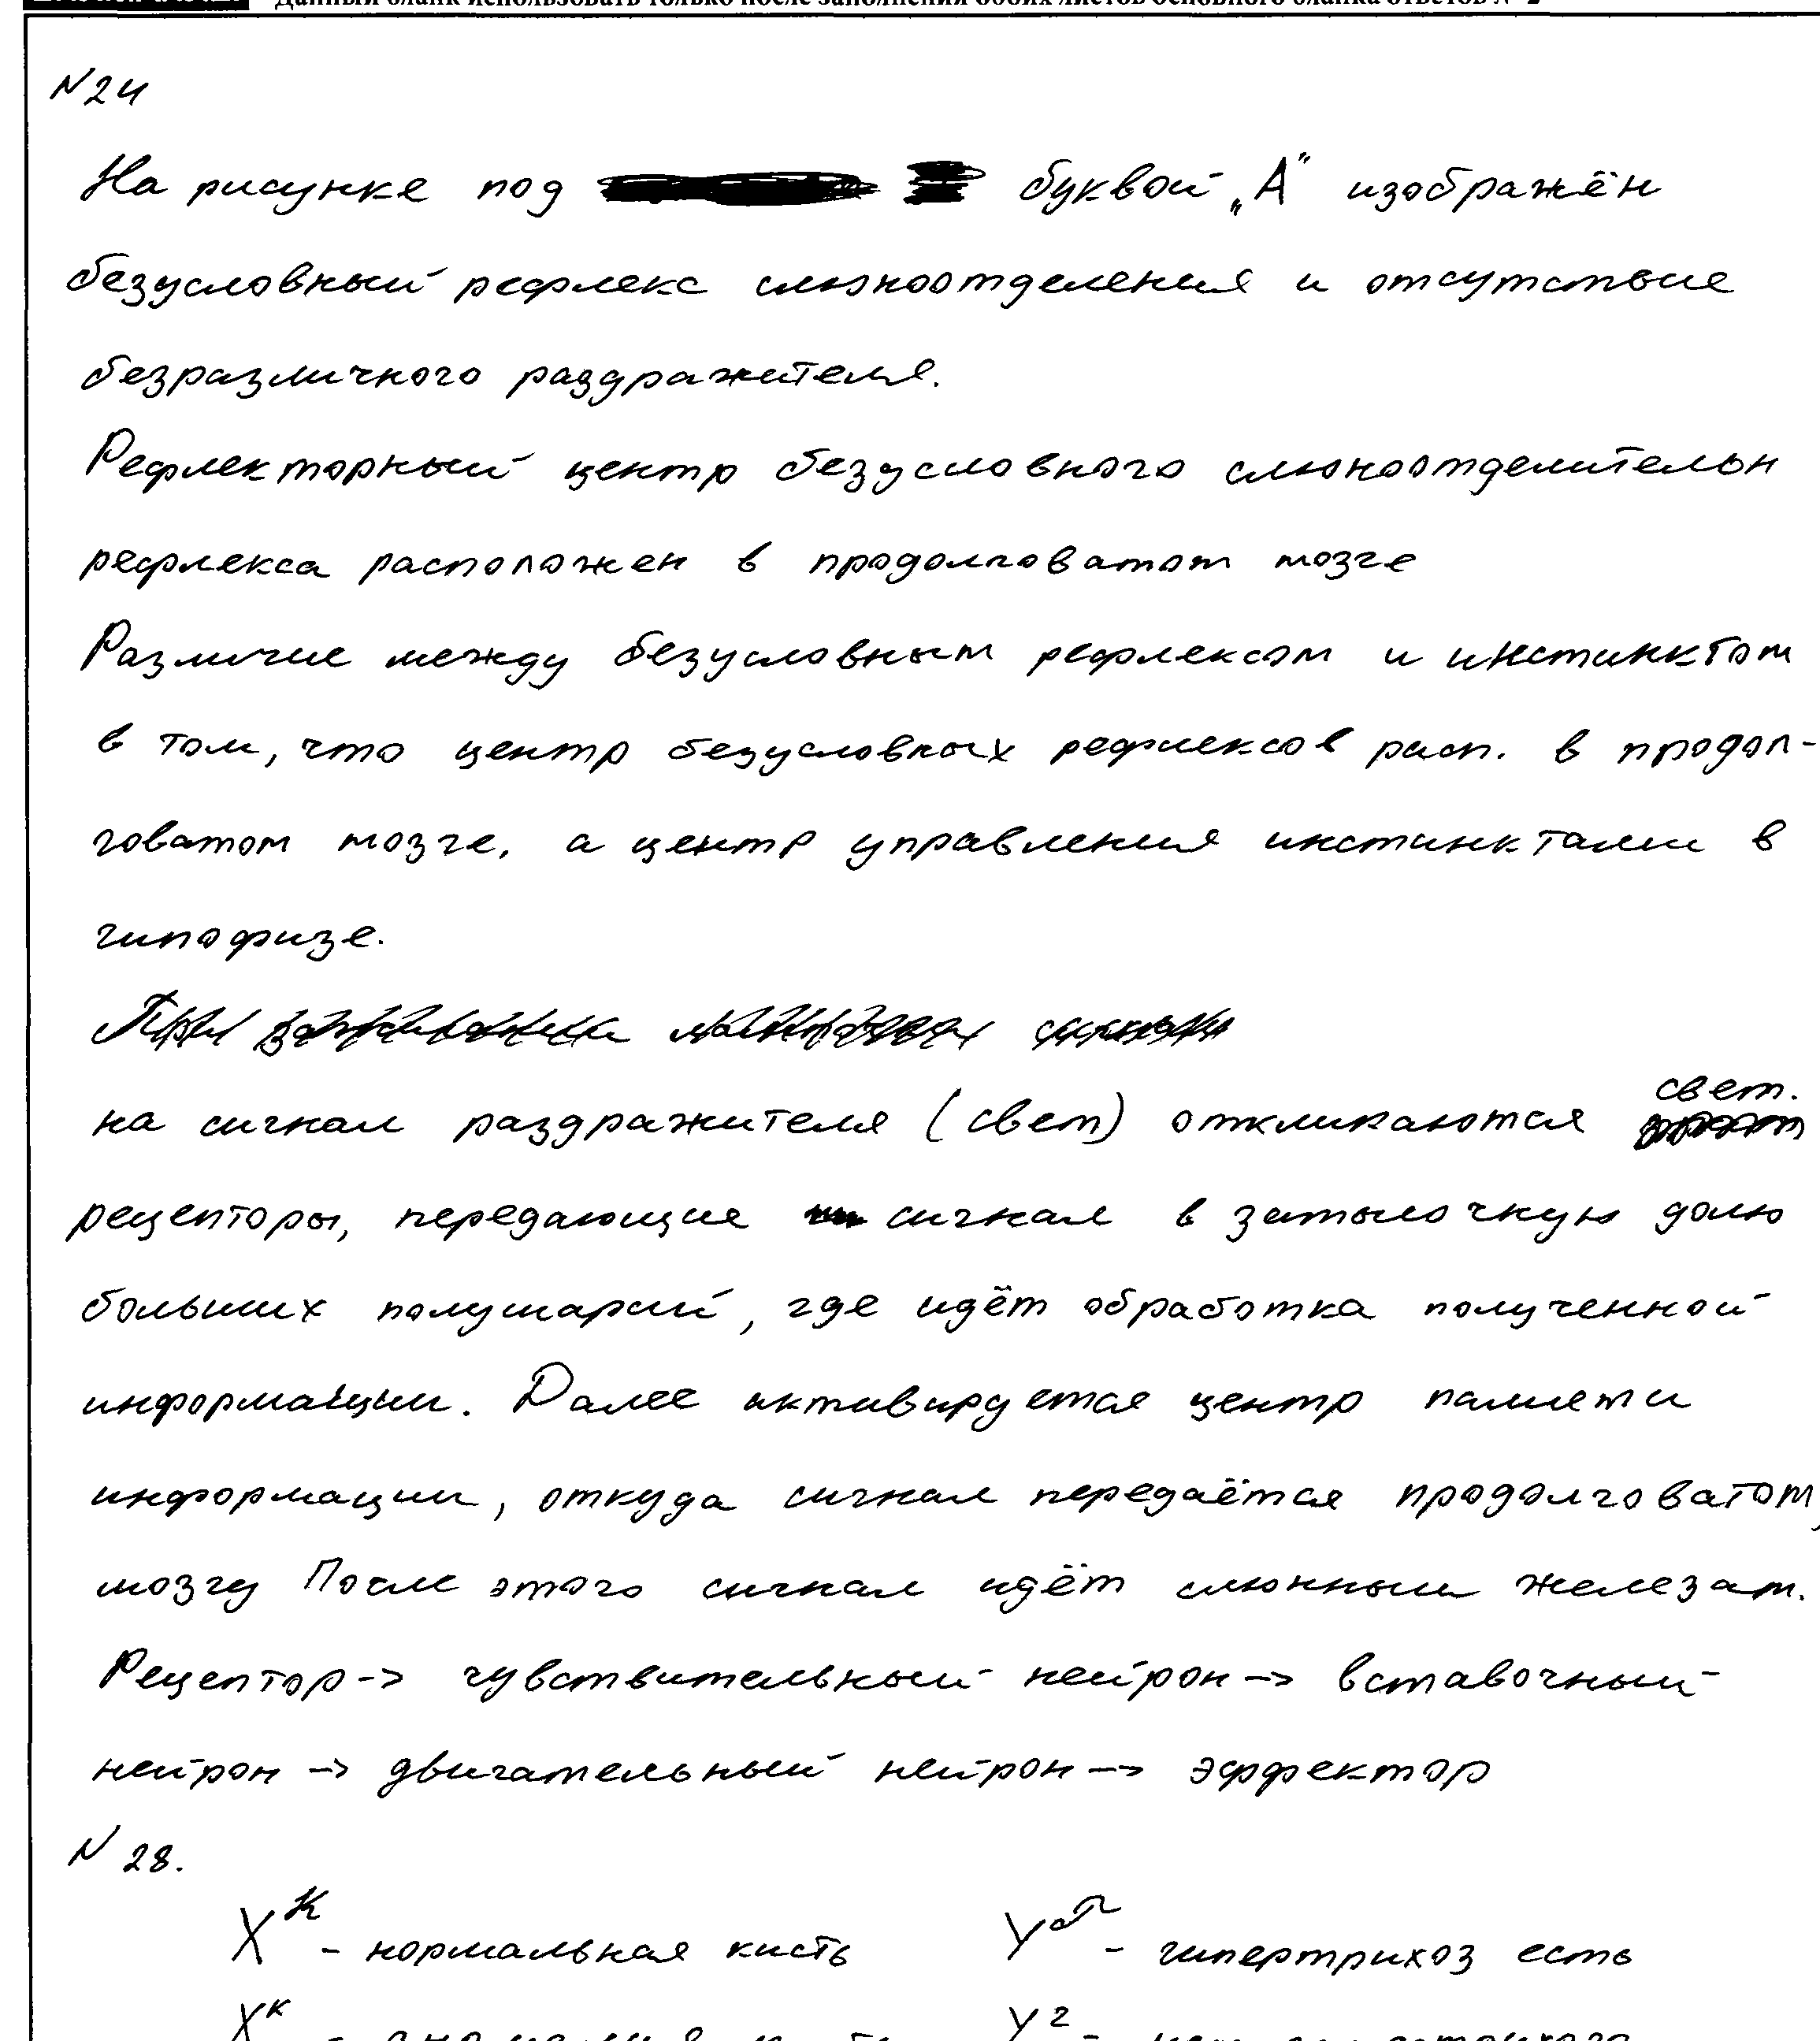 Данный бланк использовать только после заполнения обоих листов основного бланка ответов № 2
N24
На рисунке под буквой „А" изображён
безусловный рефлекс слюноотделения и отсутствие
безразличного раздражителя.
Рефлекторный центр безусловного слюноотделительн
рефлекса расположен в продолговатом мозге
Различие между безусловным рефлексом и инстинктом
в том, что центр безусловных рефлексов расп. в продол-
говатом мозге, а центр управления инстинктами в
гипофизе.
на сигнал раздражителя (свет) откликаются свет.
рецепторы, передающие сигнал в затылочную долю
больших полушарий, где идёт обработка полученной
информации. Далее активируется центр памяти
информации, откуда сигнал передаётся продолговатом
мозгу После этого сигнал идёт слюнным железам.
Рецептор -> чувствительный нейрон -> вставочный
нейрон -> двигательный нейрон -> эффектор
N 28.
X^K - нормальная кисть Y - гипертрихоз есть
X^к Y^г